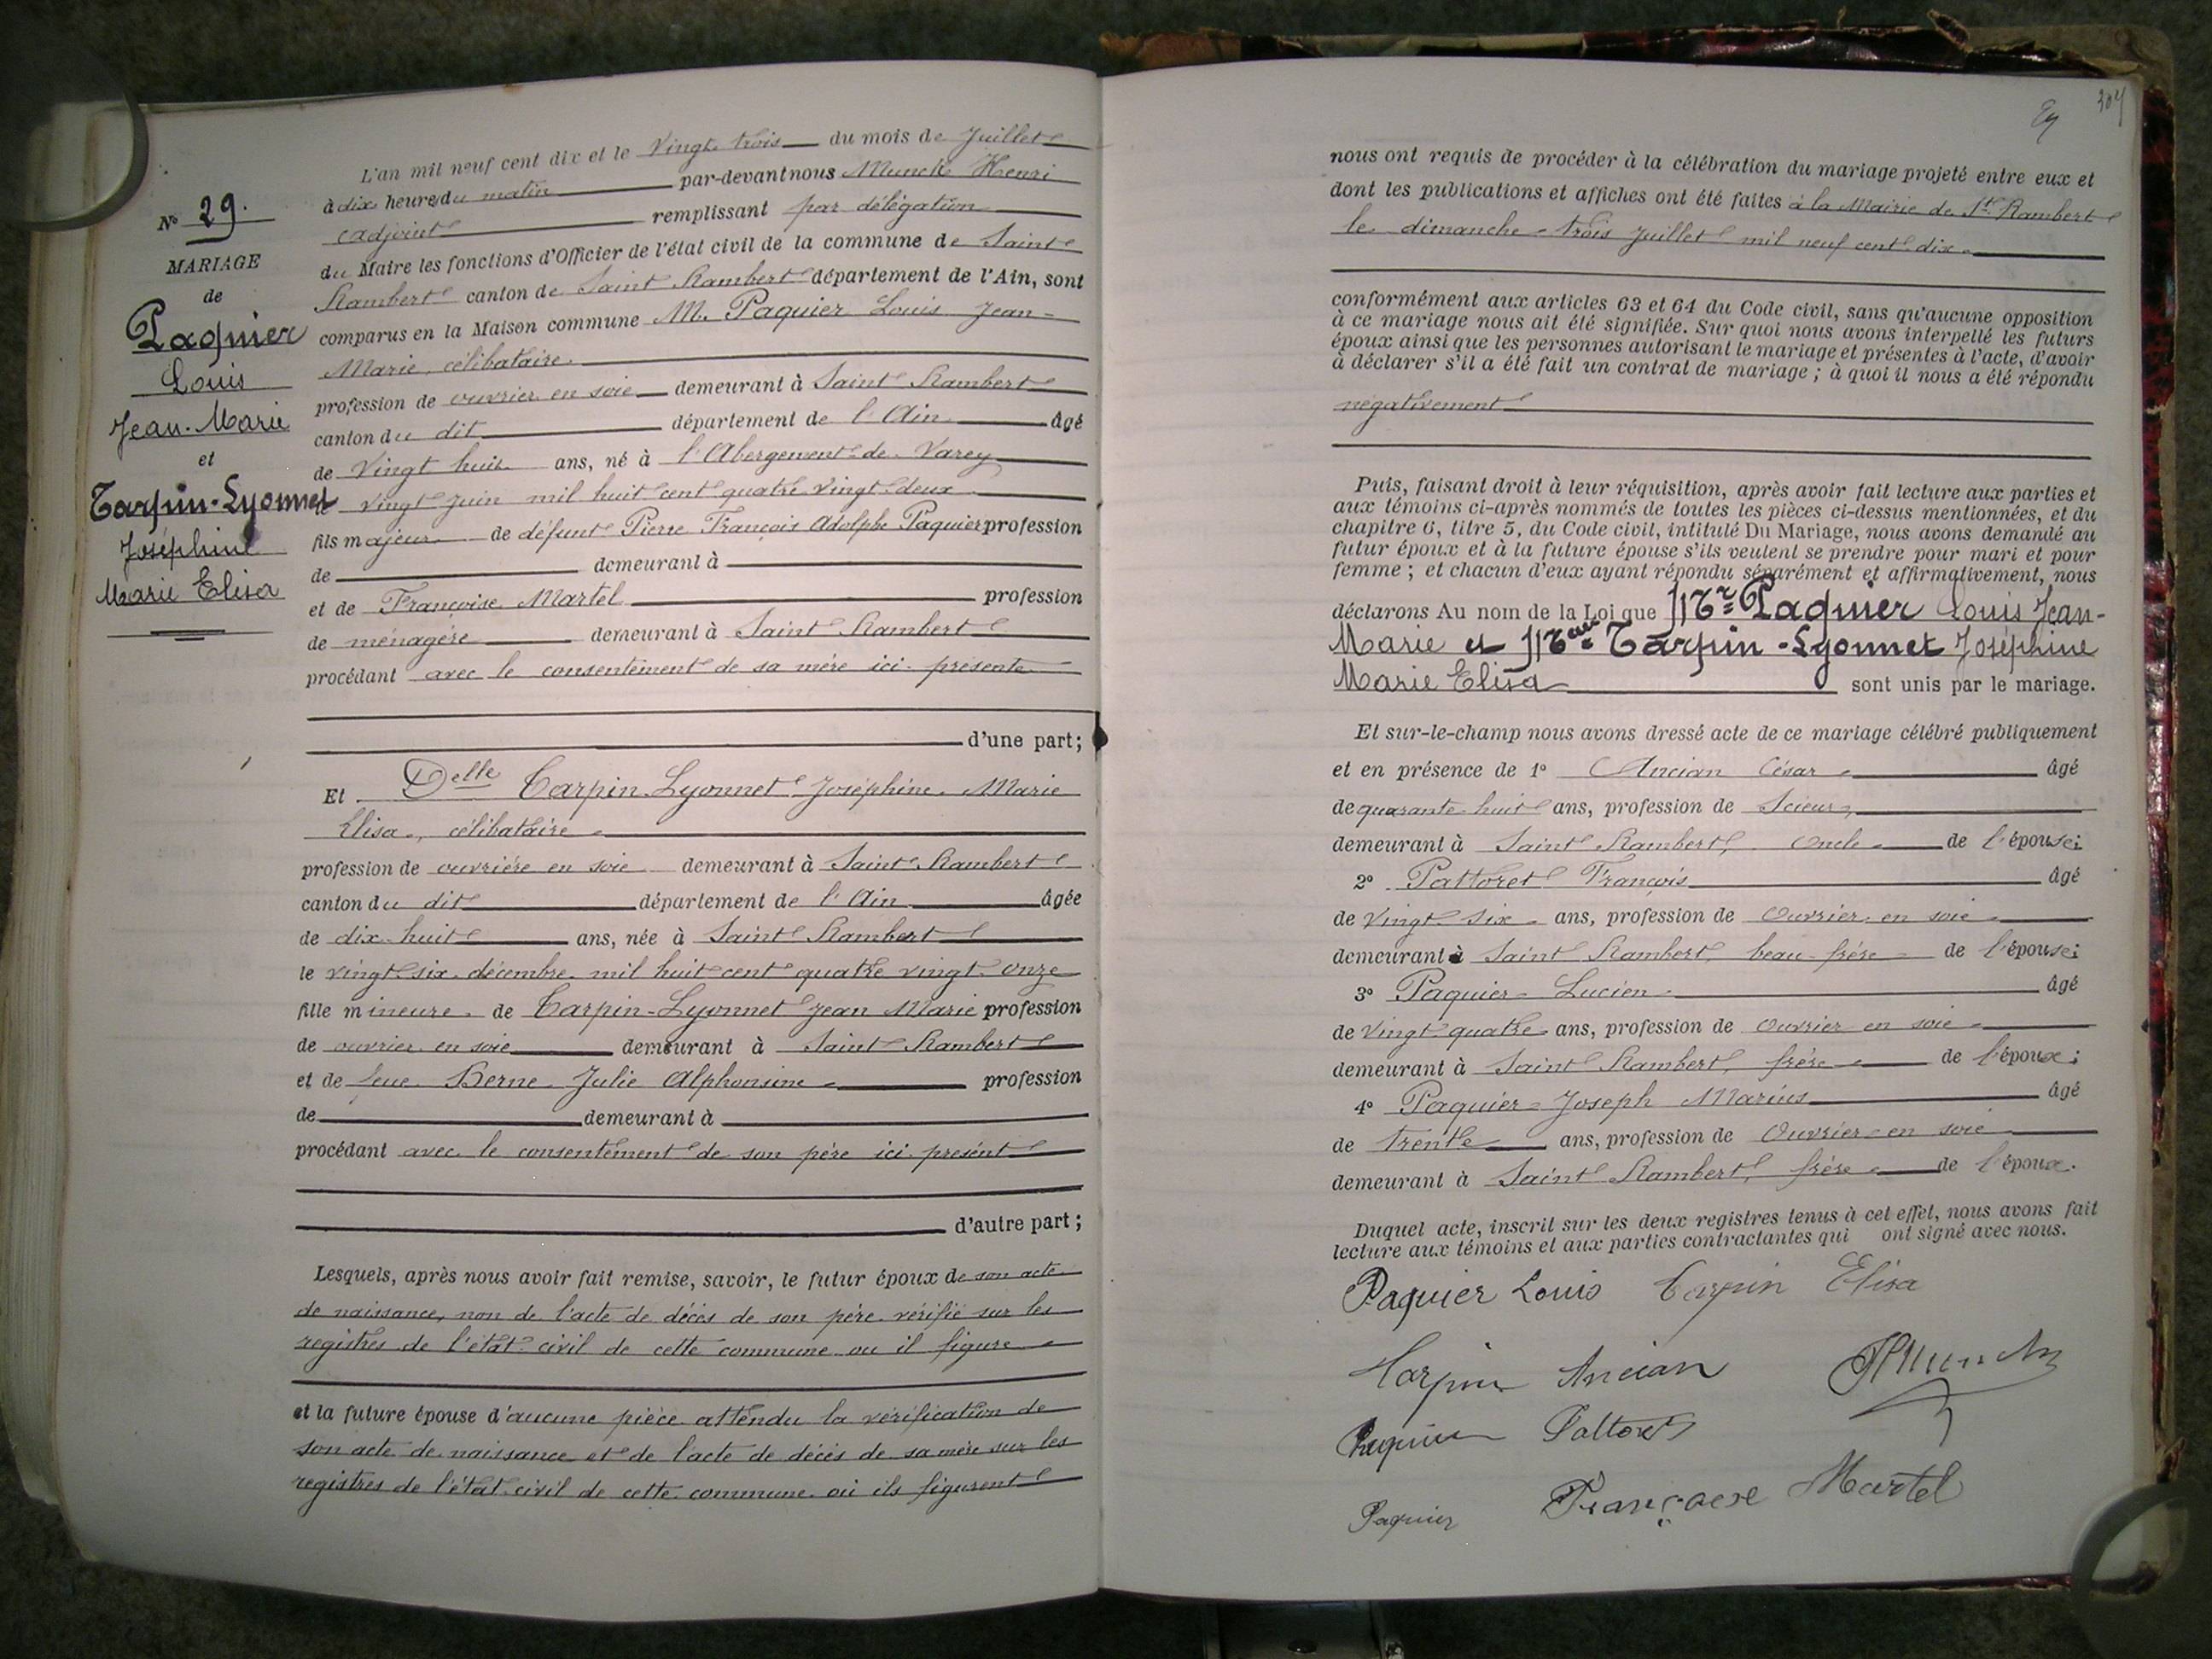 N° 29.
MARIAGE
de
Paquier
Louis
Jean-Marie
et
Tarpin-Lyonnet
Joséphine
Marie Elisa
L'an mil neuf cent dix et le vingt-trois du mois de Juillet
à dix heure du matin par-devant nous Munch Henri
adjoint remplissant par délégation
du Maire les fonctions d'Officier de l'état civil de la commune de Saint
Rambert canton de Saint Rambert département de l'Ain, sont
comparus en la Maison commune M. Paquier Louis Jean-
Marie, célibataire.
profession de ouvrier en soie demeurant à Saint Rambert
canton du dit département de l'Ain âgé
de vingt huit ans, né à l'Abergement-de-Varey
le vingt juin mil huit cent quatre vingt-deux
fils majeur de défunt Pierre François Adolphe Paquier profession
de demeurant à
et de Françoise Martel profession
de ménagère demeurant à Saint Rambert
procédant avec le consentement de sa mère ici présente
d'une part;
Et Delle Tarpin-Lyonnet Joséphine Marie
Elisa, célibataire
profession de ouvrière en soie demeurant à Saint Rambert
canton du dit département de l'Ain âgée
de dix-huit ans, née à Saint Rambert
le vingt-six décembre mil huit cent quatre vingt-onze
fille mineure de Tarpin-Lyonnet Jean Marie profession
de ouvrier en soie demeurant à Saint Rambert
et de feue Berne Julie Alphonsine profession
de demeurant à
procédant avec le consentement de son père ici présent
d'autre part;
Lesquels, après nous avoir fait remise, savoir, le futur époux de son acte
de naissance, non de l'acte de décès de son père vérifié sur les
registres de l'état-civil de cette commune ou il figure
et la future épouse d'aucune pièce attendu la vérification de
son acte de naissance et de l'acte de décès de sa mère sur les
registres de l'état-civil de cette commune où ils figurent
304
nous ont requis de procéder à la célébration du mariage projeté entre eux et
dont les publications et affiches ont été faites à la Mairie de St Rambert
le dimanche trois juillet mil neuf cent dix
conformément aux articles 63 et 64 du Code civil, sans qu'aucune opposition
à ce mariage nous ait été signifiée. Sur quoi nous avons interpellé les futurs
époux ainsi que les personnes autorisant le mariage et présentes à l'acte, d'avoir
à déclarer s'il a été fait un contrat de mariage ; à quoi il nous a été répondu
négativement
Puis, faisant droit à leur réquisition, après avoir fait lecture aux parties et
aux témoins ci-après nommés de toutes les pièces ci-dessus mentionnées, et du
chapitre 6, titre 5, du Code civil, intitulé Du Mariage, nous avons demandé au
futur époux et à la future épouse s'ils veulent se prendre pour mari et pour
femme ; et chacun d'eux ayant répondu séparément et affirmativement, nous
déclarons Au nom de la Loi que Mr Paquier Louis Jean-
Marie et Melle Tarpin-Lyonnet Joséphine
Marie Elisa sont unis par le mariage.
Et sur-le-champ nous avons dressé acte de ce mariage célébré publiquement
et en présence de 1° Ancian César âgé
de quarante-huit ans, profession de Scieur,
demeurant à Saint Rambert, oncle de l'épouse;
2° Pattoret François âgé
de vingt six ans, profession de Ouvrier en soie
demeurant à Saint Rambert, beau-frère de l'épouse;
3° Paquier Lucien âgé
de vingt quatre ans, profession de Ouvrier en soie
demeurant à Saint Rambert, frère de l'époux;
4° Paquier Joseph Marius âgé
de trente ans, profession de Ouvrier en soie
demeurant à Saint Rambert, frère de l'époux.
Duquel acte, inscrit sur les deux registres tenus à cet effet, nous avons fait
lecture aux témoins et aux parties contractantes qui ont signé avec nous.
Paquier Louis Tarpin Elisa
Tarpin Ancian HMunch
Paquier Pattoret
Paquier Françoise Martel